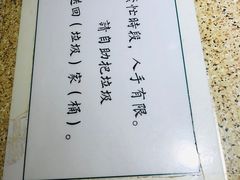 忙時段，人手有限。
請自助把垃圾
回（垃圾）家（桶）。